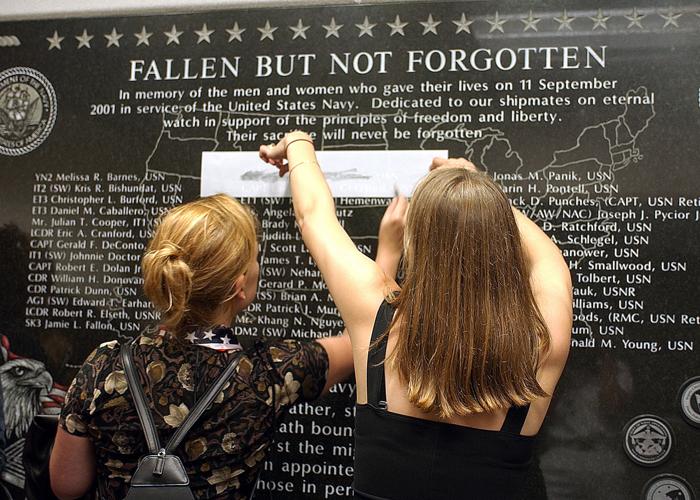 FALLEN BUT NOT FORGOTTEN
In memory of the men and women who gave their lives on 11 September
2001 in service of the United States Navy. Dedicated to our shipmates on eternal
watch in support of the principles of freedom and liberty.
Their sacrifice will never be forgotten
YN2 Melissa R. Barnes, USN
IT2 (SW) Kris R. Bishundat, USN
ET3 Christopher L. Burford, USN
ET3 Daniel M. Caballero, USN
Mr. Julian T. Cooper, IT1
LCDR Eric A. Cranford, USN
CAPT Gerald F. DeConto,
IT1 (SW) Johnnie Doctor
CAPT Robert E. Dolan Jr
CDR William H. Donovan
CDR Patrick Dunn, USN
AG1 (SW) Edward T. Earhar
LCDR Robert R. Elseth, USNR
SK3 Jamie L. Fallon, USN
ET1 (SW) Hemenwa
Angela
Brady
Judith
Scott L
James T.
(SW) Nehar
Gerard P. M
(SS) Brian A. M
DR Patrick J. Mur
Mr. Khang N. Nguye
DM2 (SW) Michael A
Jonas M. Panik, USN
arin H. Pontell, USN
ck D. Punches, (CAPT, USN Ret
(AW/NAC) Joseph J. Pycior
D. Ratchford, USN
A. Schlegel, USN
anower, USN
H. Smallwood, USN
Tolbert, USN
auk, USNR
lliams, USN
oods, (RMC, USN Ret
um, USN
nald M. Young, USN
avy
ather, s
ath boun
st the mi
n appointe
hose in per